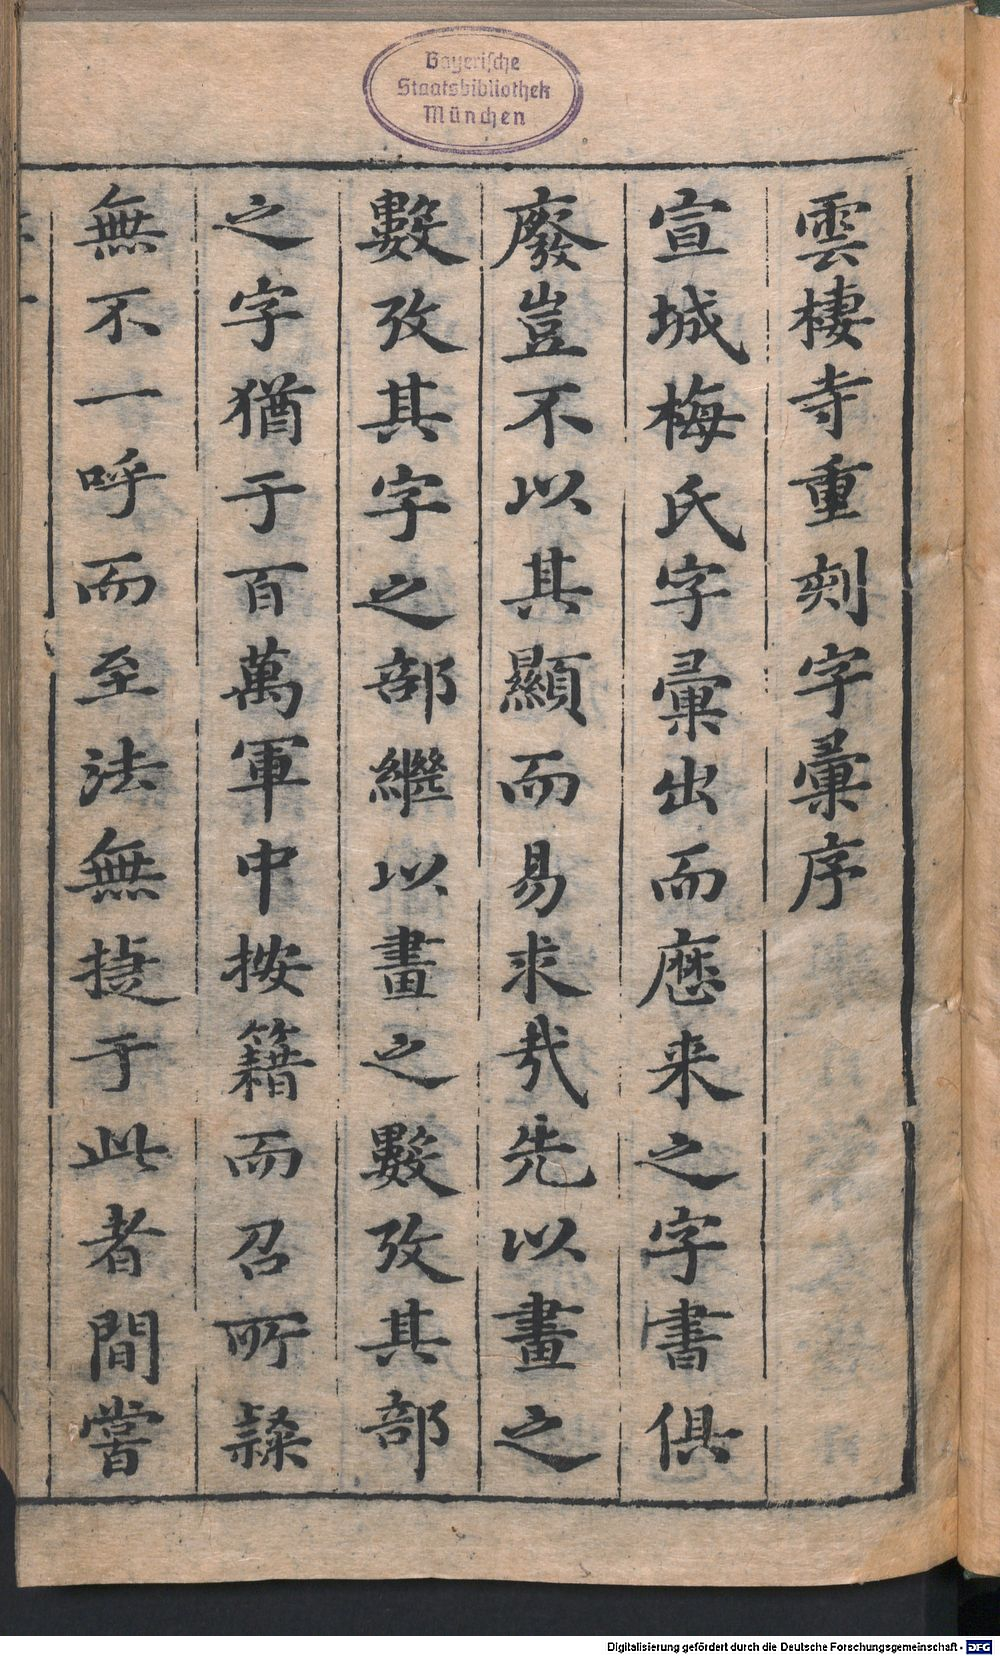 Bayerische
Staatsbibliothek
München
雲棲寺重刻字彙序
宣城梅氏字彙出而歷来之字書俱
廢豈不以其顯而易求㢤先以畫之
數攷其字之部繼以畫之數攷其部
之字猶于百萬軍中按籍而召所隷
無不一呼而至法無捷于此者間嘗
Digitalisierung gefördert durch die Deutsche Forschungsgemeinschaft - DFG